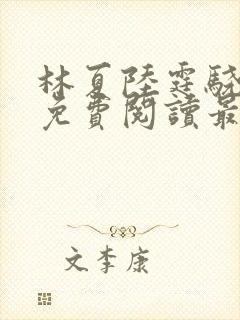 林夏陸霆驍
免費閱讀最
文李康